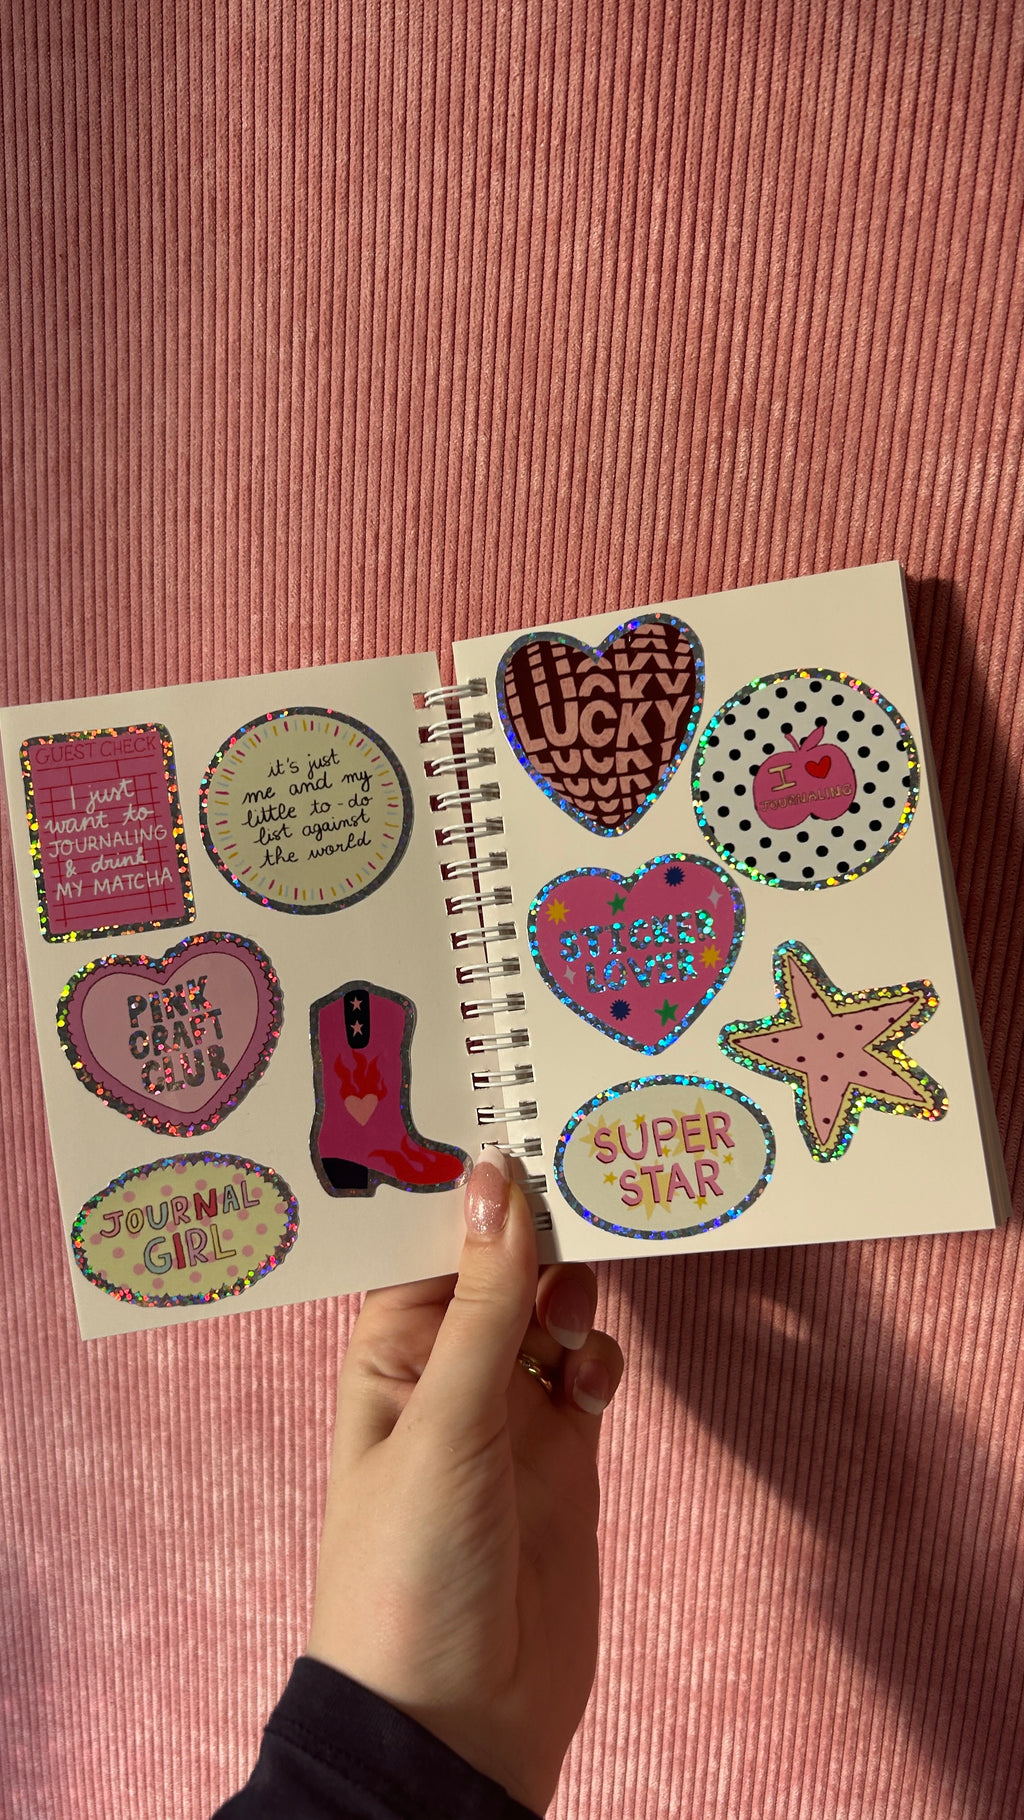 GUEST CHECK
I just
want to
JOURNALING
& drink
MY MATCHA
it's just
me and my
little to-do
list against
the world
PINK
CRAFT
CLUB
JOURNAL
GIRL
LUCKY
LUCKY
LUCKY
LUCKY
LUCKY
I
JOURNALING
STICKER
LOVER
SUPER
STAR